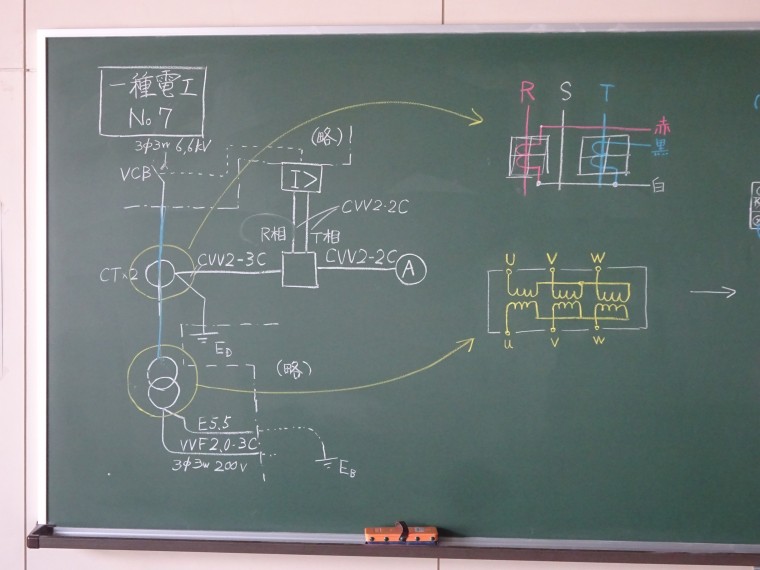 一種電工
No 7
3φ3W 6,6kV
VCB
(略)
I>
CVV2-2C
R相
T相
CT×2
CVV2-3C
CVV2-2C
A
ED
(略)
E5.5
VVF2,0-3C
3φ3W 200V
EB
R S T
赤
黒
白
U V W
u v w